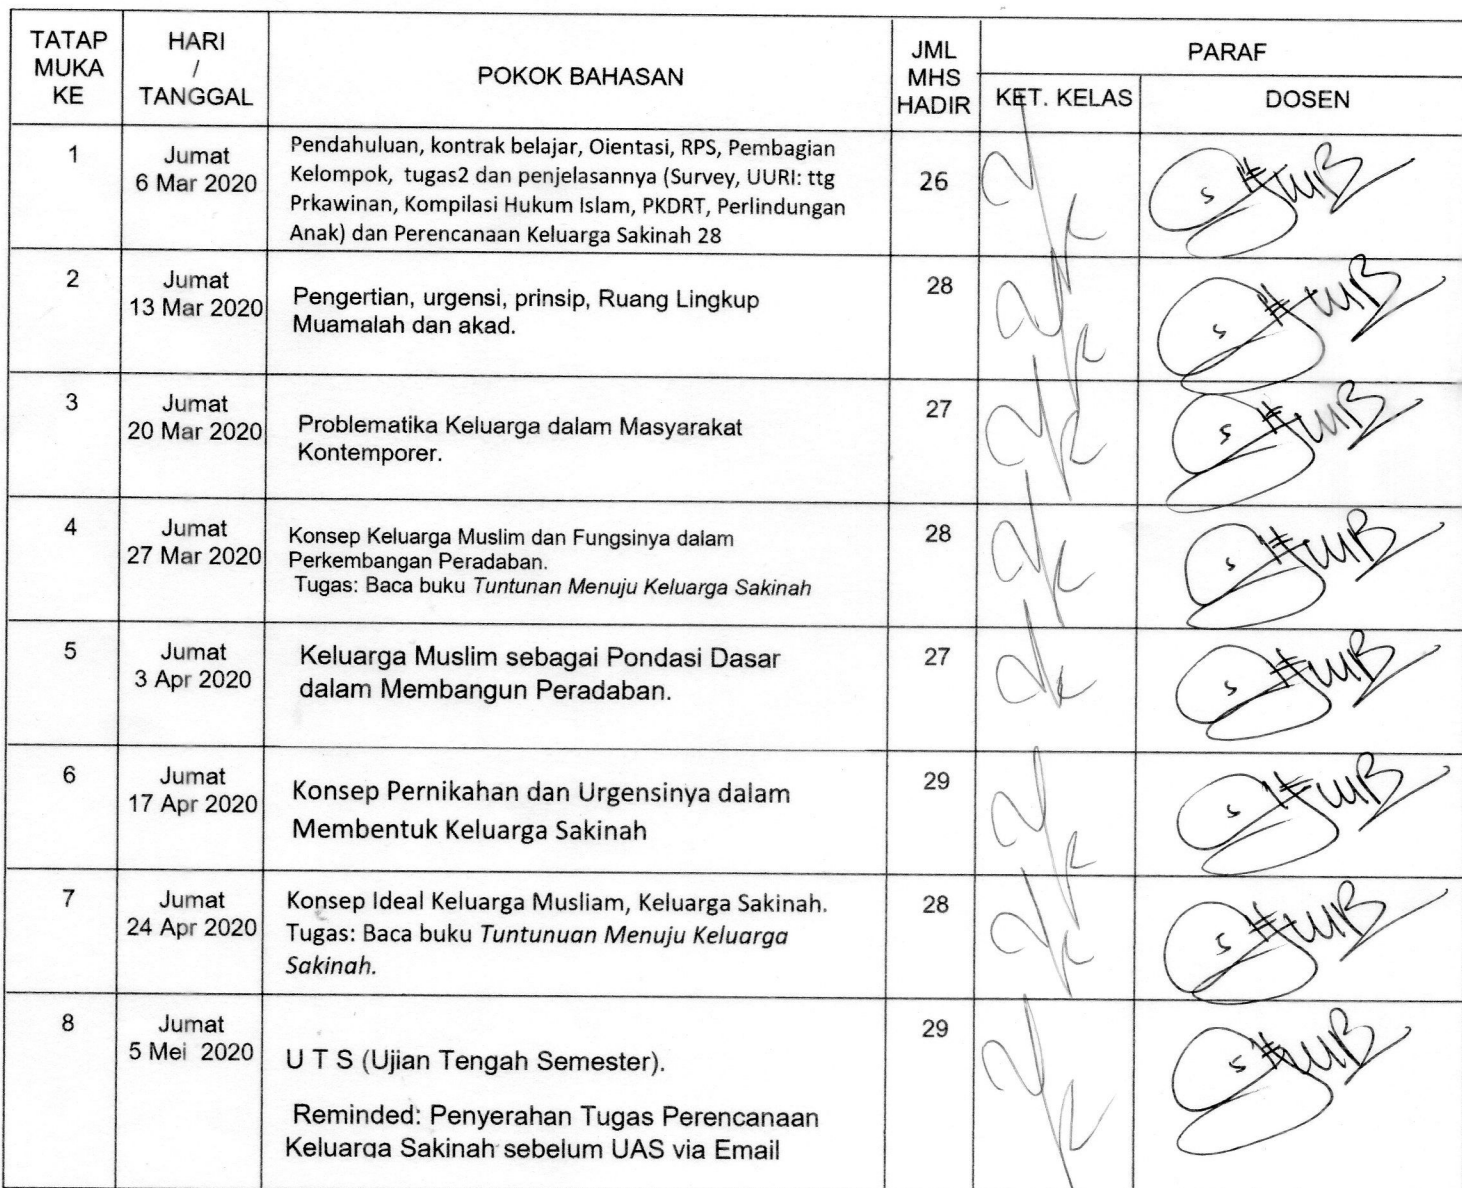 TATAP MUKA KE
HARI / TANGGAL
POKOK BAHASAN
JML MHS HADIR
PARAF
KET. KELAS
DOSEN
1
Jumat
6 Mar 2020
Pendahuluan, kontrak belajar, Oientasi, RPS, Pembagian
Kelompok, tugas2 dan penjelasannya (Survey, UURI: ttg
Prkawinan, Kompilasi Hukum Islam, PKDRT, Perlindungan
Anak) dan Perencanaan Keluarga Sakinah 28
26
2
Jumat
13 Mar 2020
Pengertian, urgensi, prinsip, Ruang Lingkup
Muamalah dan akad.
28
3
Jumat
20 Mar 2020
Problematika Keluarga dalam Masyarakat
Kontemporer.
27
4
Jumat
27 Mar 2020
Konsep Keluarga Muslim dan Fungsinya dalam
Perkembangan Peradaban.
Tugas: Baca buku Tuntunan Menuju Keluarga Sakinah
28
5
Jumat
3 Apr 2020
Keluarga Muslim sebagai Pondasi Dasar
dalam Membangun Peradaban.
27
6
Jumat
17 Apr 2020
Konsep Pernikahan dan Urgensinya dalam
Membentuk Keluarga Sakinah
29
7
Jumat
24 Apr 2020
Konsep Ideal Keluarga Musliam, Keluarga Sakinah.
Tugas: Baca buku Tuntunuan Menuju Keluarga
Sakinah.
28
8
Jumat
5 Mei 2020
U T S (Ujian Tengah Semester).
Reminded: Penyerahan Tugas Perencanaan
Keluarga Sakinah sebelum UAS via Email
29